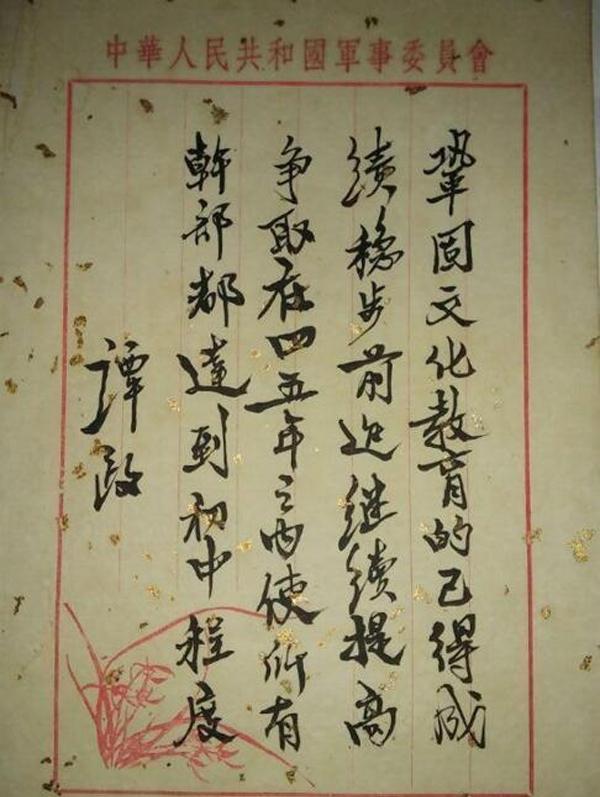 中華人民共和國軍事委員會
鞏固文化教育的已得成
績穩步前进继续提高
争取在四五年之内使所有
幹部都達到初中程度
譚政